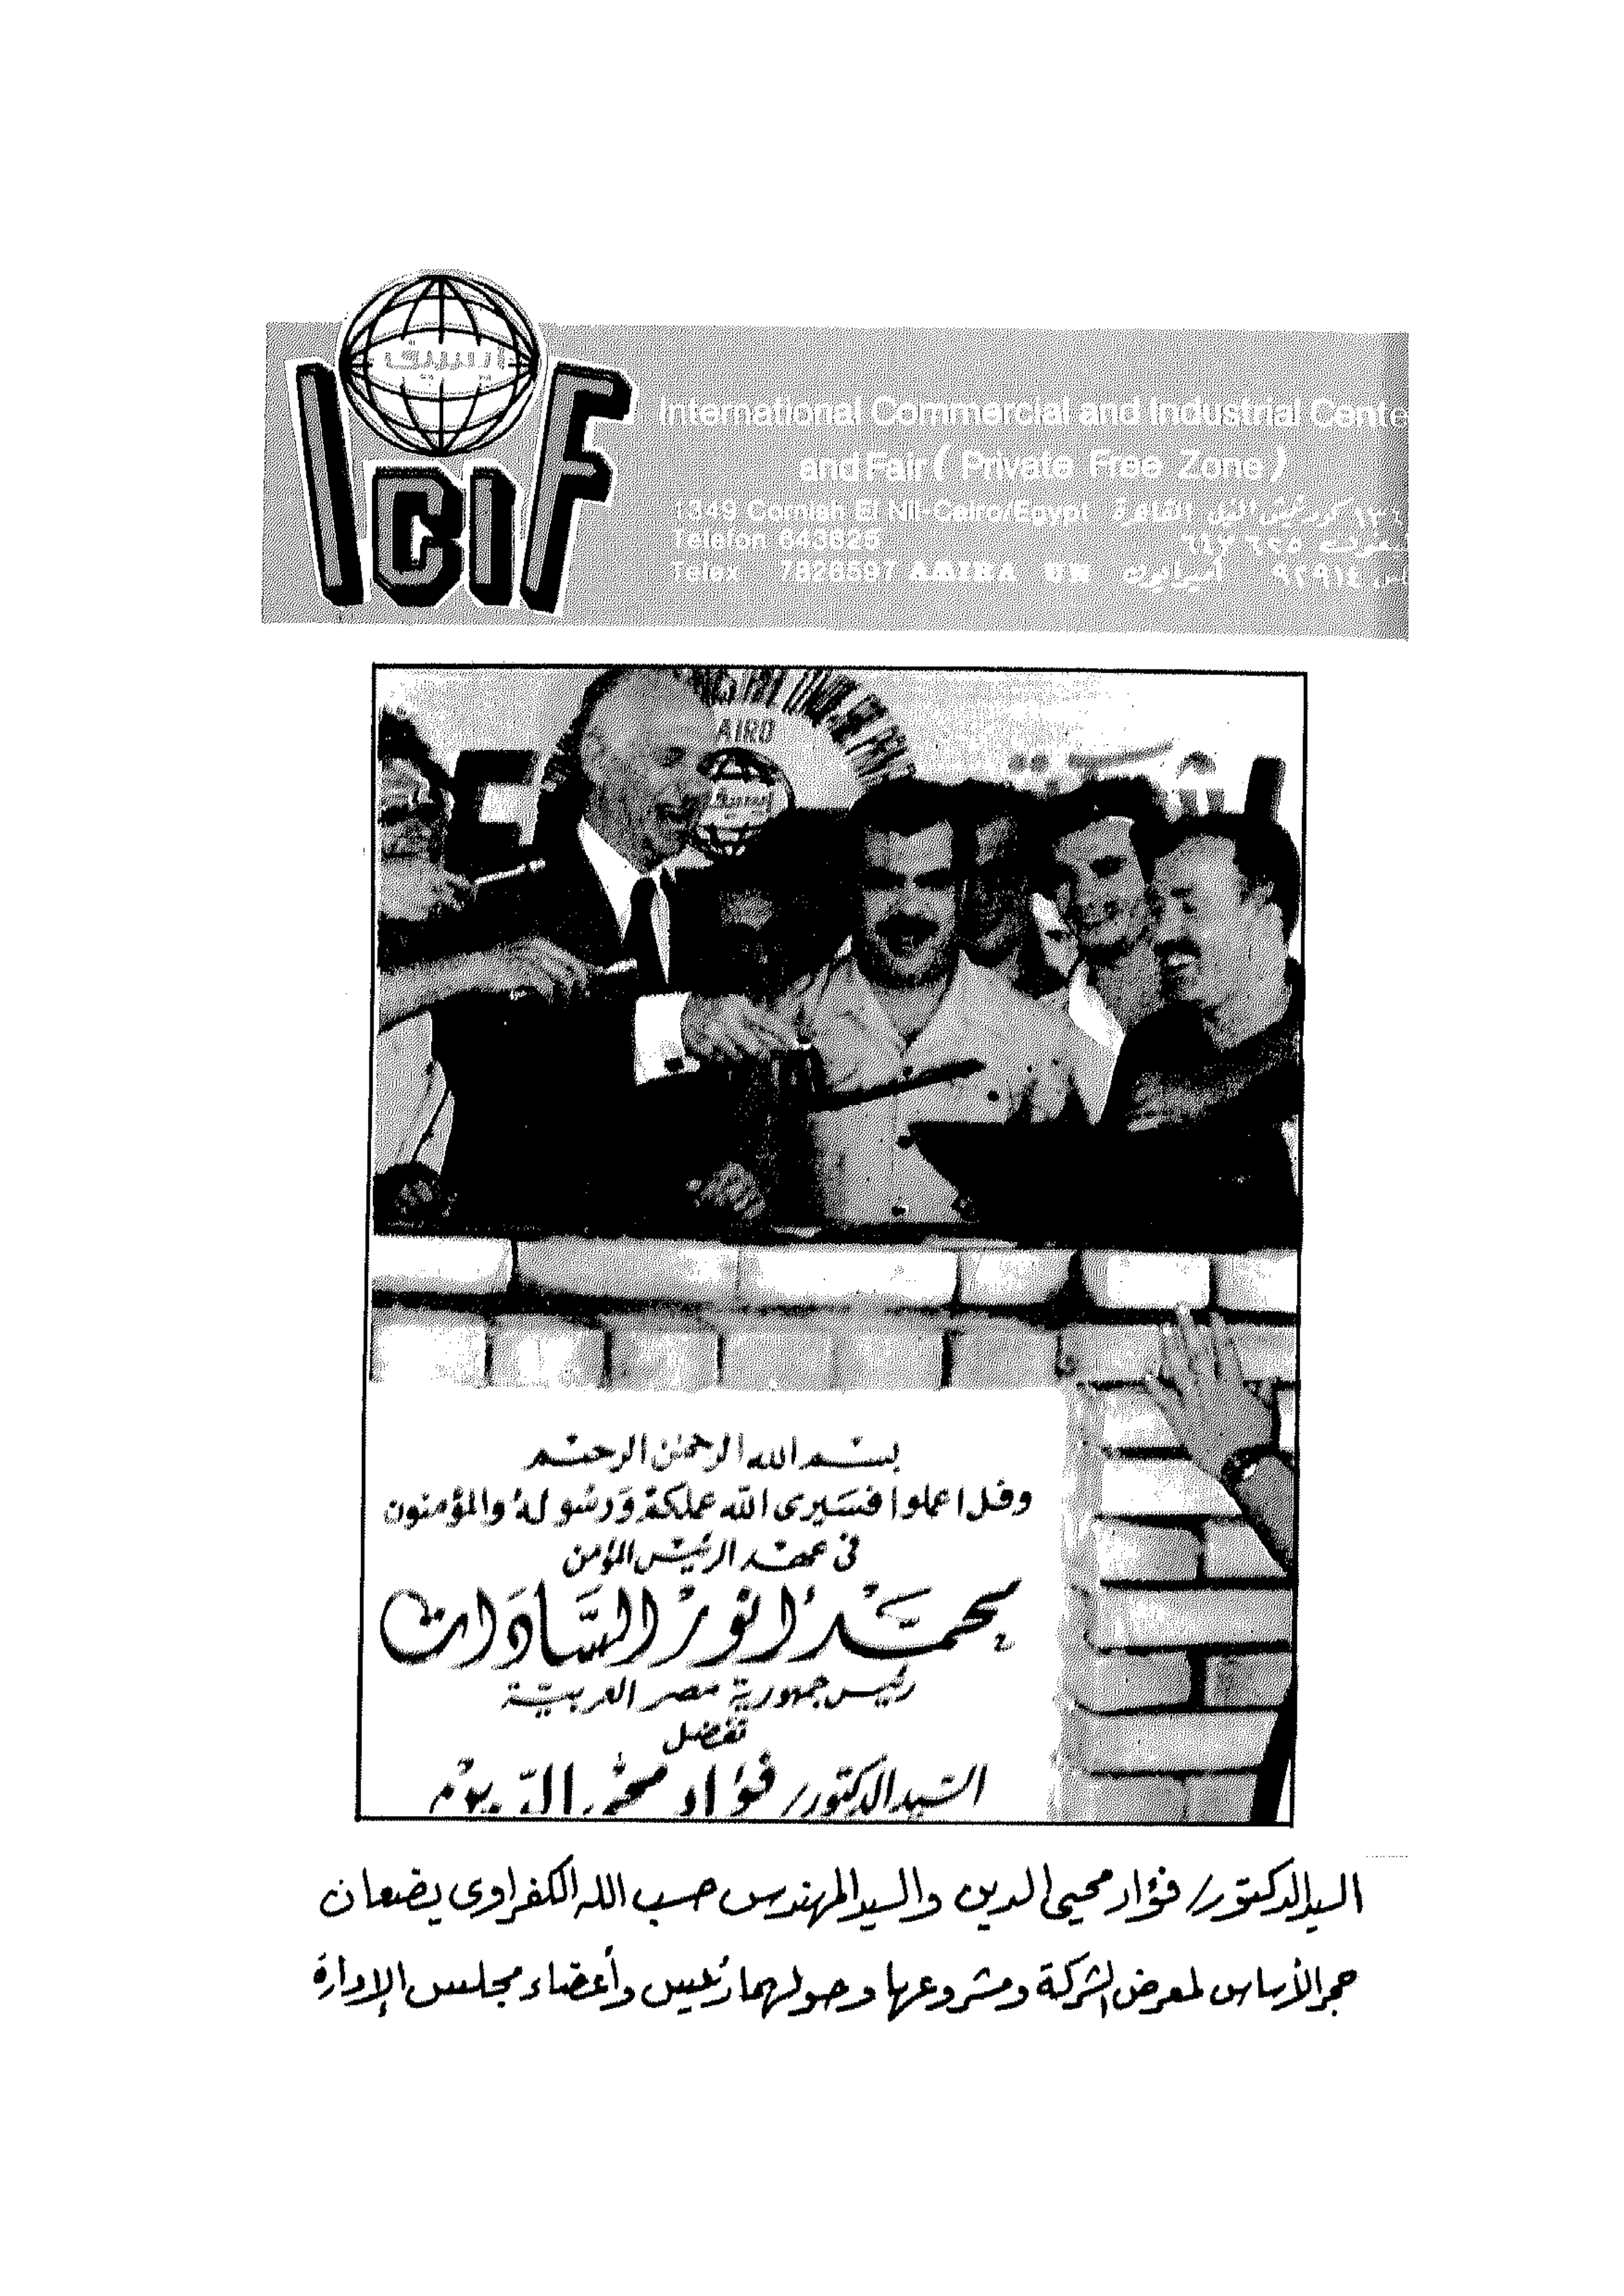 ايسيف
ICIF
International Commercial and Industrial Cente
and Fair ( Private Free Zone )
1349 Cornish El Nil-Cairo/Egypt كورنيش النيل القاهرة
Telefon 843625
Telex 7828597 AMIRA UN أميرايون ٩٢٩١٤
AIRO
ايسيف
بسم الله الرحمن الرحيم
وقل اعملوا فسيرى الله عملكم ورسوله والمؤمنون
فى عهد الرئيس المؤمن
محمد أنور السادات
رئيس جمهورية مصر العربية
تفضل
السيد الدكتور/ فؤاد
السيد الدكتور/ فؤاد محيى الدين والسيد المهندس حسب الله الكفراوى يضعان
حجر الأساس لمعرض الشركة ومشروعها وحولهما رئيس وأعضاء مجلس الإدارة